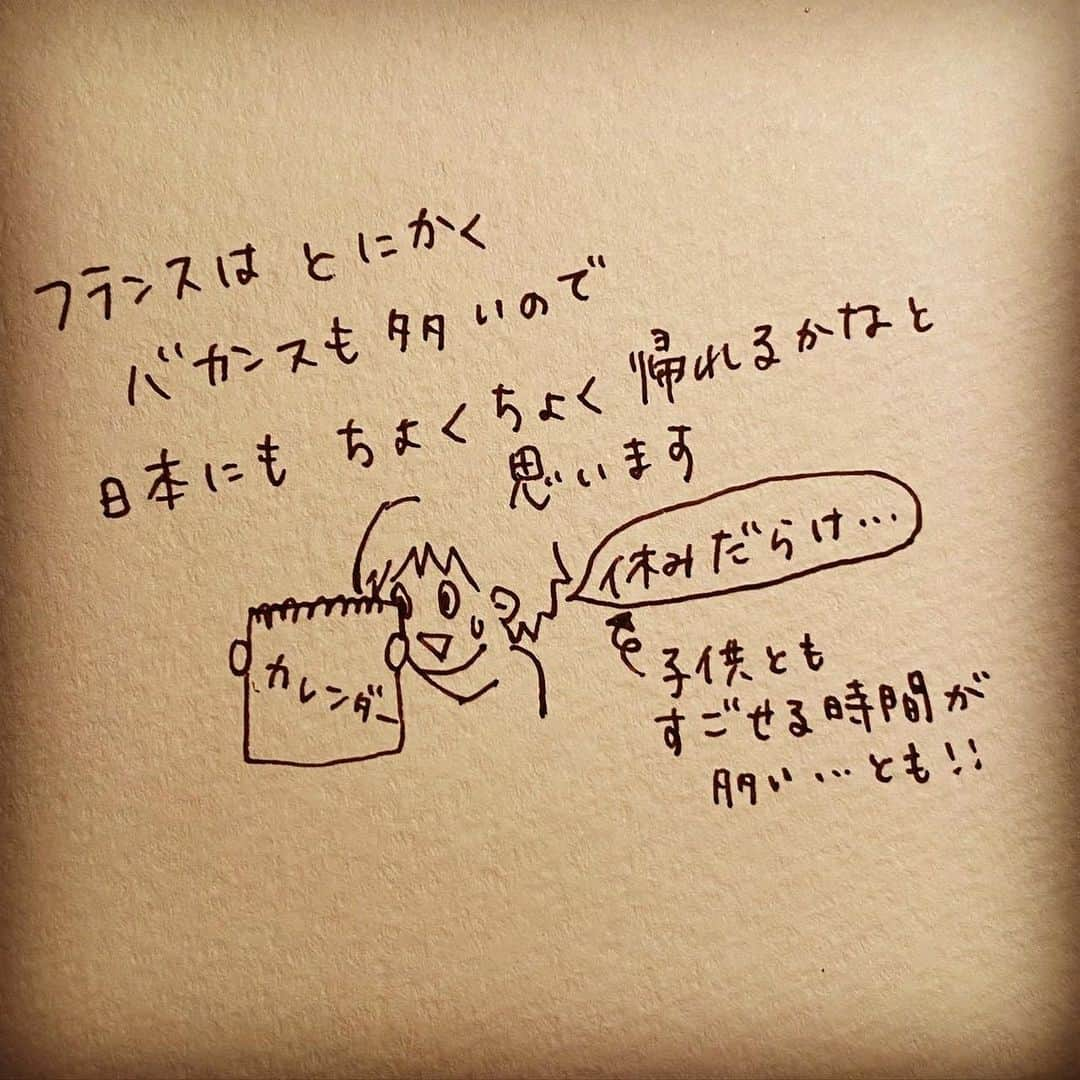 フランスは とにかく
バカンスも多いので
日本にも ちょくちょく 帰れるかなと
思います
休みだらけ…
カレンダー
子供とも
すごせる時間が
多い…とも!!